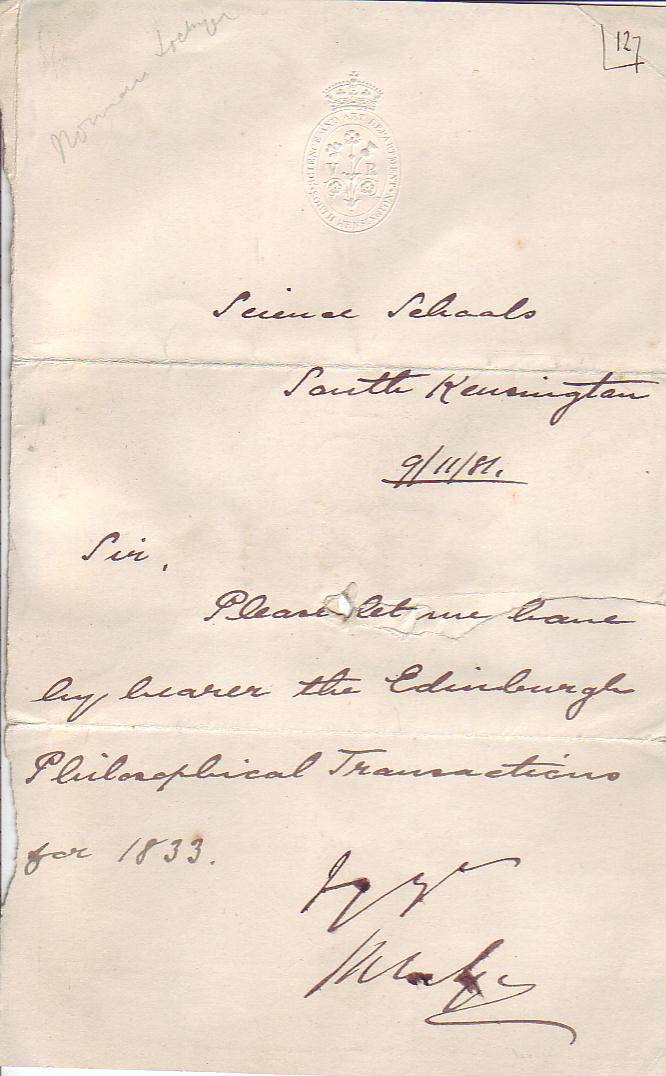 Norman Lockyer
127
SCIENCE AND ART DEPARTMENT SOUTH KENSINGTON
V R
Science Schools
South Kensington
9/11/81.
Sir,
Please let me have
by bearer the Edinburgh
Philosophical Transactions
for 1833.